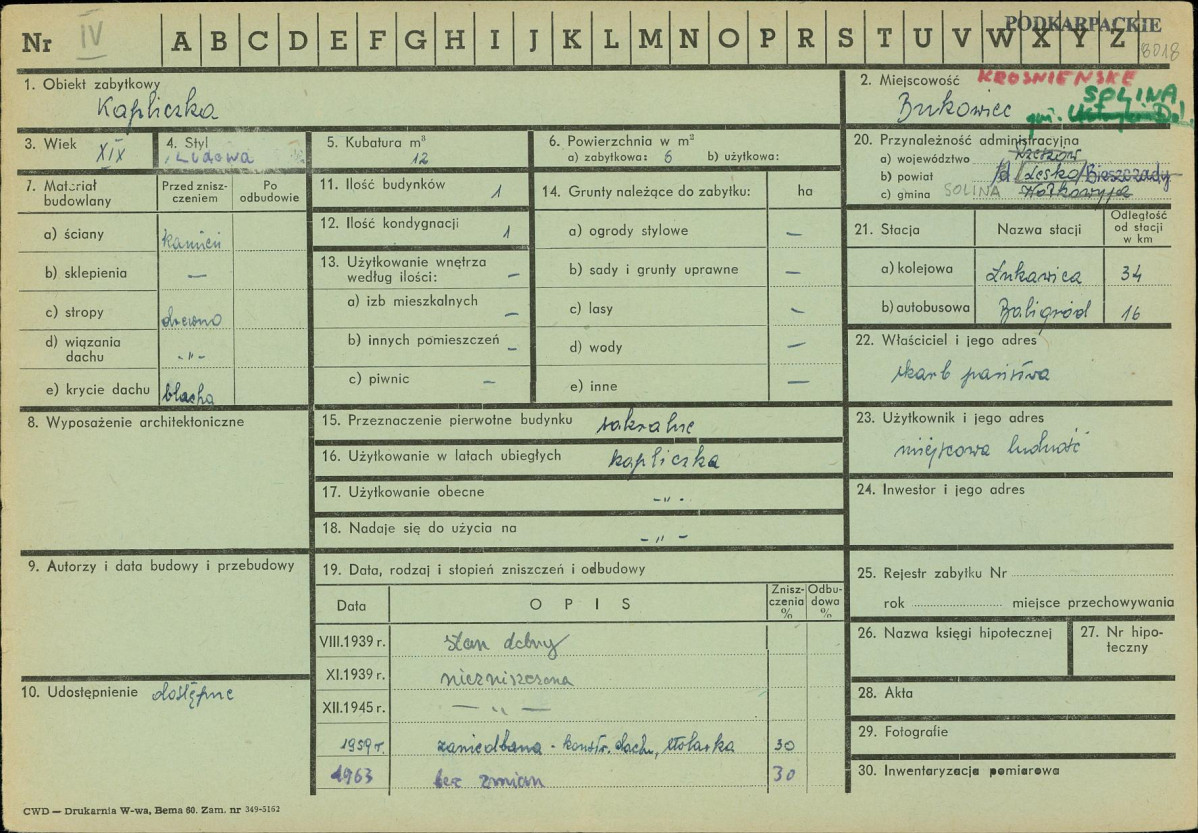 PODKARPACKIE
Nr IV A B C D E F G H I J K L M N O P R S T U V W X Y Z
8018
1. Obiekt zabytkowy
Kapliczka
2. Miejscowość KROŚNIEŃSKIE
Bukowiec
SOLINA
gm.
3. Wiek XIX
4. Styl Ludowa
5. Kubatura m³
12
6. Powierzchnia w m²
a) zabytkowa: 6 b) użytkowa:
20. Przynależność administracyjna
a) województwo Rzeszów
b) powiat Lesko/Bieszczady
c) gmina SOLINA Wołkowyja
7. Materiał budowlany
Przed znisz-
czeniem
Po
odbudowie
a) ściany kamień
b) sklepienia —
c) stropy drewno
d) wiązania
dachu -"-
e) krycie dachu blacha
11. Ilość budynków 1
12. Ilość kondygnacji 1
13. Użytkowanie wnętrza
według ilości: —
a) izb mieszkalnych —
b) innych pomieszczeń —
c) piwnic —
14. Grunty należące do zabytku: ha
a) ogrody stylowe —
b) sady i grunty uprawne —
c) lasy —
d) wody —
e) inne —
21. Stacja Nazwa stacji
Odległość
od stacji
w km
a) kolejowa Łukawica 34
b) autobusowa Baligród 16
22. Właściciel i jego adres
skarb państwa
8. Wyposażenie architektoniczne
15. Przeznaczenie pierwotne budynku sakralne
16. Użytkowanie w latach ubiegłych kapliczka
17. Użytkowanie obecne -"-
18. Nadaje się do użycia na -"-
23. Użytkownik i jego adres
miejscowa ludność
24. Inwestor i jego adres
9. Autorzy i data budowy i przebudowy
10. Udostępnienie dostępne
19. Data, rodzaj i stopień zniszczeń i odbudowy
Data OPIS
Znisz-
czenia
%
Odbu-
dowa
%
VIII.1939 r. stan dobry
XI.1939 r. niezniszczona
XII.1945 r. — " —
1959 r. zaniedbana - konstr. dachu, stolarka 30
1963 bez zmian 30
25. Rejestr zabytku Nr
rok miejsce przechowywania
26. Nazwa księgi hipotecznej
27. Nr hipo-
teczny
28. Akta
29. Fotografie
30. Inwentaryzacja pomiarowa
CWD — Drukarnia W-wa, Bema 60. Zam. nr 349-5162